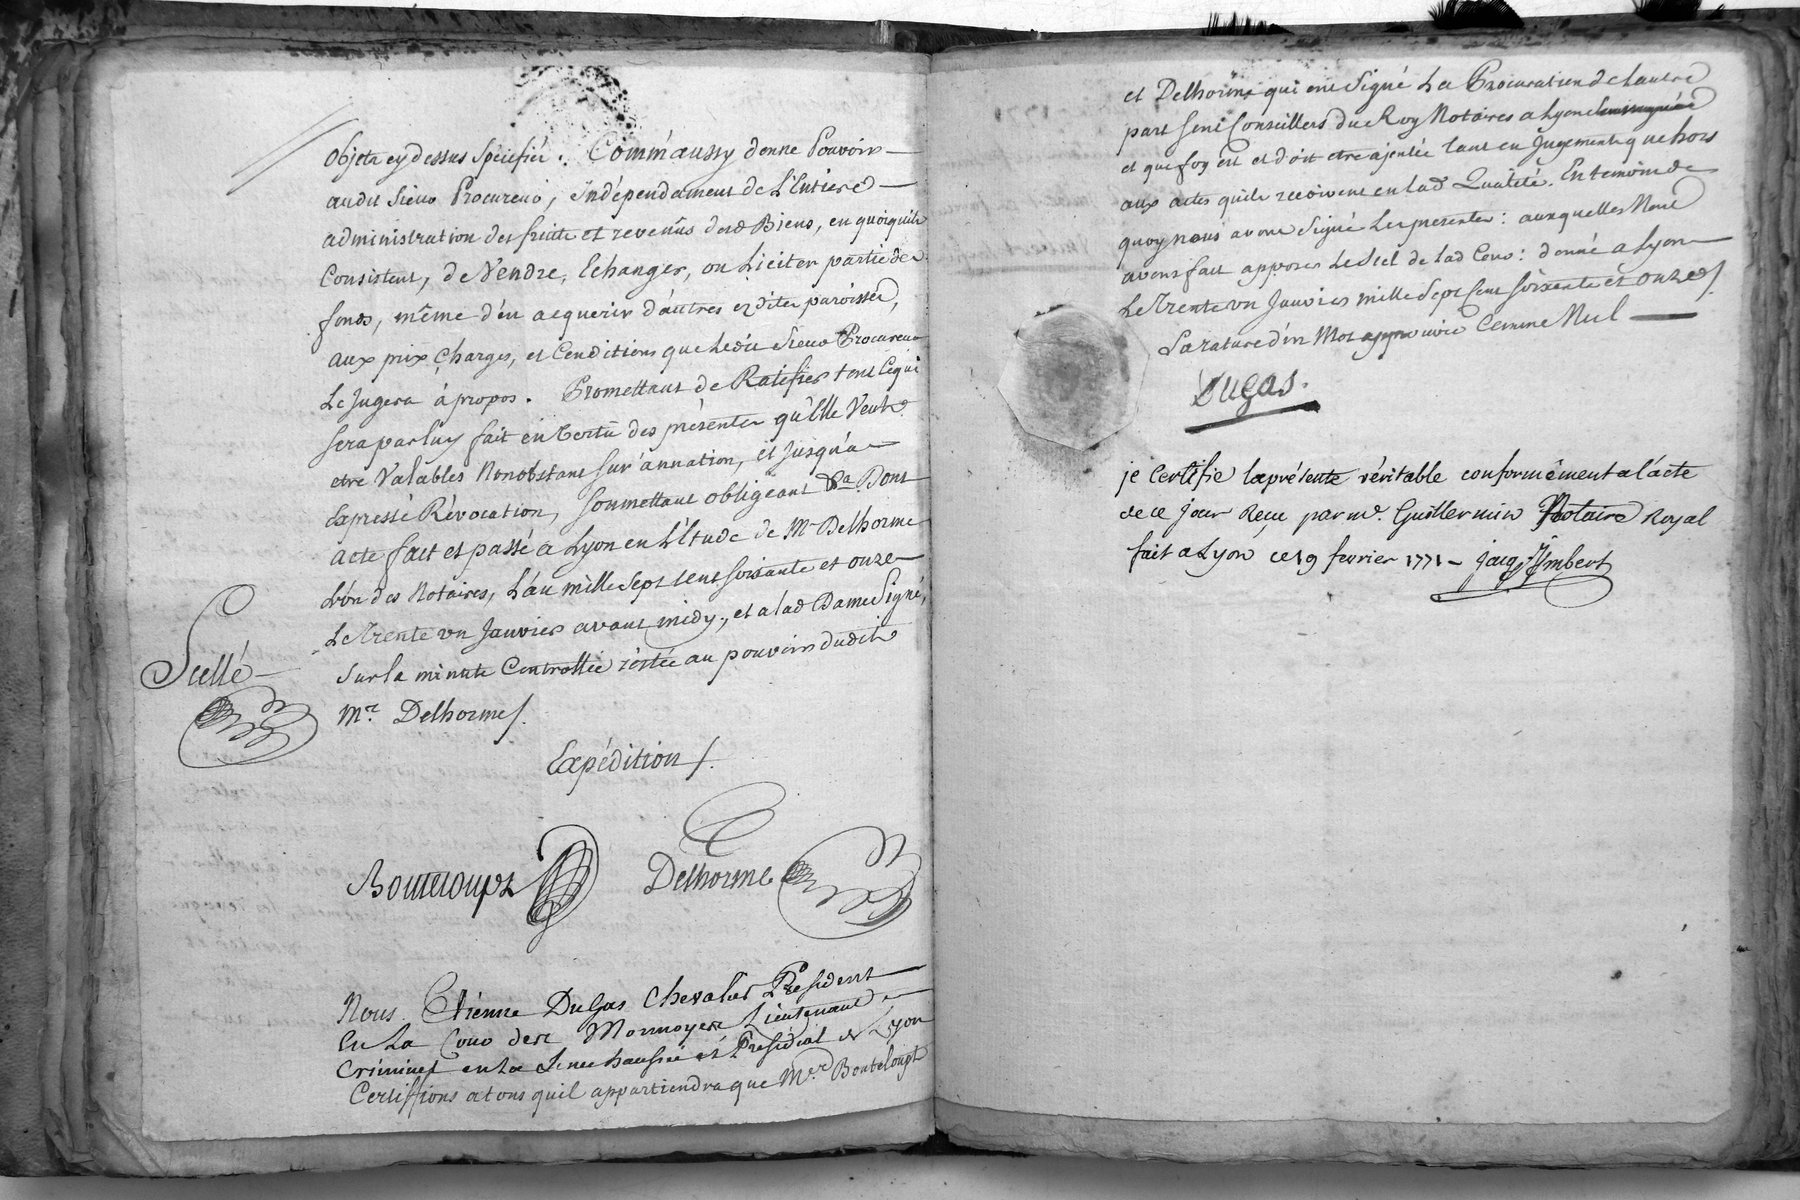 objets cy dessus Spécifiés. Comm'aussy donne Pouvoir
audit Sieur Procureur, Indépendament de L'Entiere
administration des fruits et revenûs desd Biens, en quoiquils
Consistent, de Vendre, Echanger, ou Liciter partie des
fonds, même d'en acquerir d'autres ezdites paroisses,
aux prix Charges, et Conditions que Ledit Sieur Procureur
Le Jugera à propos. Promettant de Ratifier tout Ce qui
Sera par luy fait en Vertû des présentes qu'Elle Veut
etre Valables Nonobstant Sur'annation, et Jusqu'a
Expresse Révocation, Soumettant obligeant &a. Dont
acte fait et passé a Lyon en L'Etude de Me Delhorme
L'un des Notaires, L'an mille Sept Cent Soixante et onze
Le Trente un Janvier avant midy, et a lad Dame Signé,
Sur la minute Controllée restée au pouvoir dudit
Mr. Delhorme/.
Scellé
Expédition/.
Bouteloupt
Delhorme
Nous Etienne DuGas Chevalier President
En La Cour des Monnoyes Lieutenant
Criminel en La Senechaussée et Presidial de Lyon
Certiffions a tous quil appartiendra que Mes. Bouteloupt
et Delhorme qui ont Signé La Procuration de lautre
part Sont Conseillers du Roy Notaires a Lyon
et que foy est et doit etre ajoutée tant en Jugement que hors
aux actes quils recoivent en lad Qualité. En temoin de
quoy nous avons Signé Les presentes: auxquelles Nous
avons fait apposer Le Scel de lad Cour: donné a Lyon
Le Trente un Janvier mille Sept Cent Soixante et onze/.
La rature d'un Mot approuvée Comme Nul
Dugas.
je Certifie la présente véritable conformément a l'acte
de ce jour Reçu par me. Guillermin Notaire Royal
fait a Lyon ce 19 fevrier 1771 - Jacq Imbert